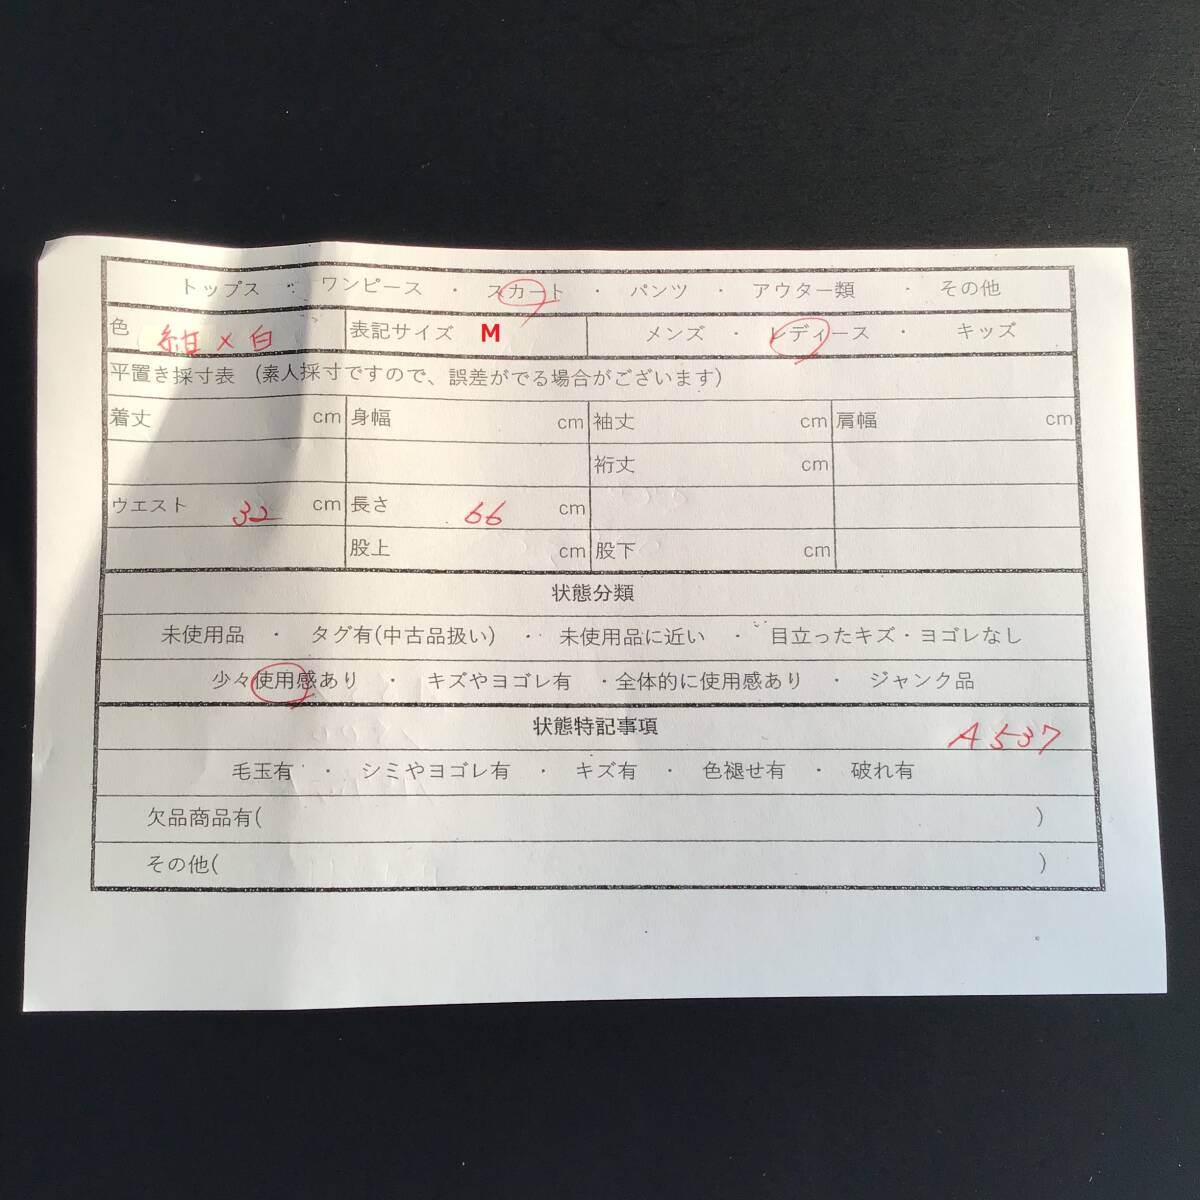 トップス ・ ワンピース ・ スカート ・ パンツ ・ アウター類 ・ その他
色 紺×白 表記サイズ M メンズ ・ レディース ・ キッズ
平置き採寸表 (素人採寸ですので、誤差がでる場合がございます)
着丈 cm 身幅 cm 袖丈 cm 肩幅 cm
裄丈 cm
ウエスト 32 cm 長さ 66 cm
股上 cm 股下 cm
状態分類
未使用品 ・ タグ有(中古品扱い) ・ 未使用品に近い ・ 目立ったキズ・ヨゴレなし
少々使用感あり ・ キズやヨゴレ有 ・全体的に使用感あり ・ ジャンク品
状態特記事項 A537
毛玉有 ・ シミやヨゴレ有 ・ キズ有 ・ 色褪せ有 ・ 破れ有
欠品商品有( )
その他( )